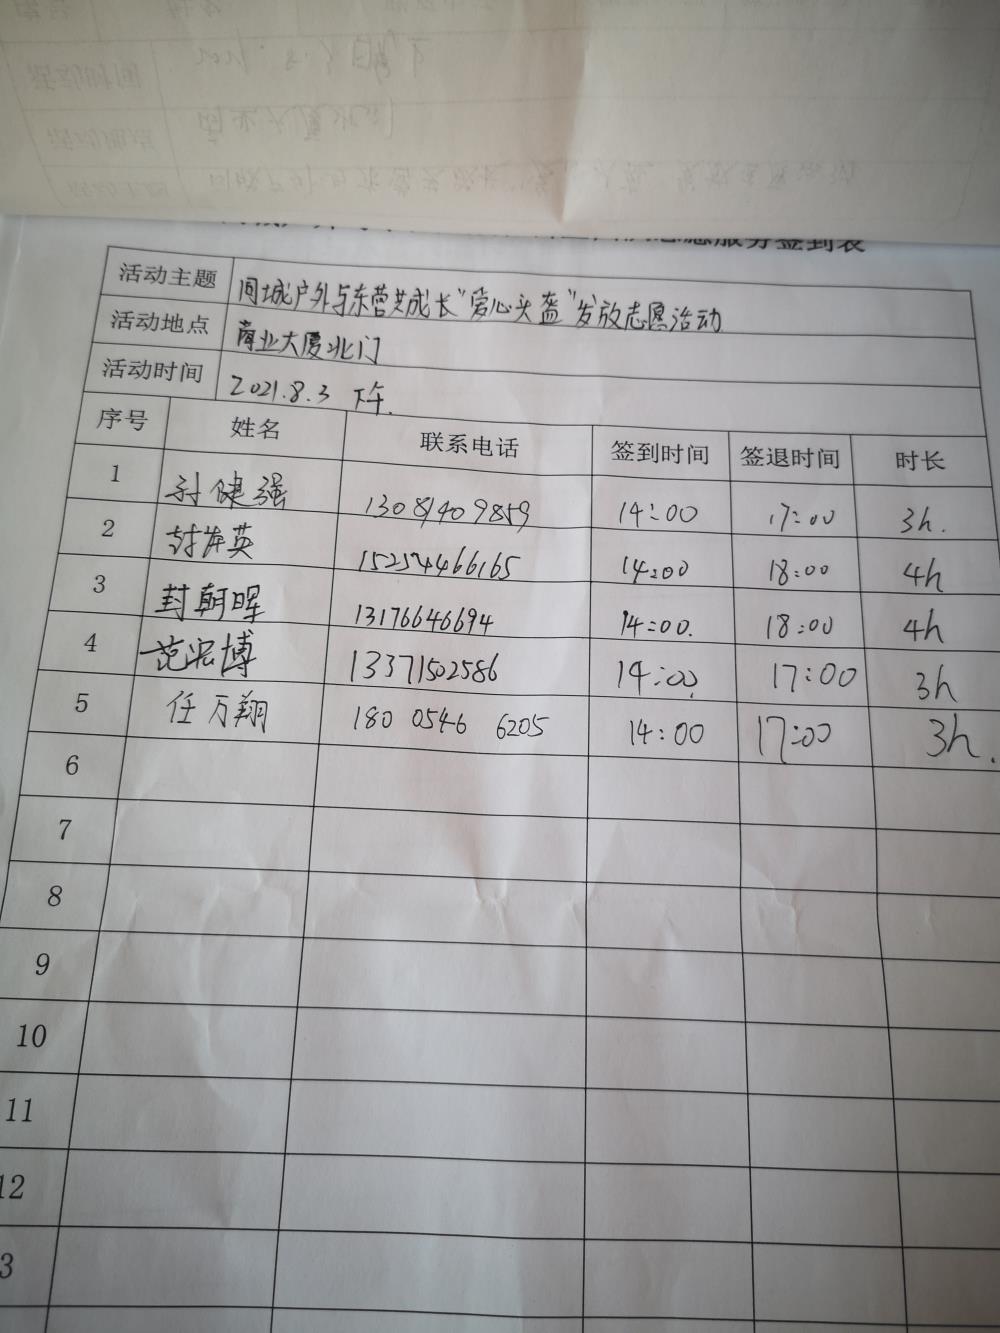 志愿服务签到表
活动主题 同城户外与东营共成长"爱心头盔"发放志愿活动
活动地点 商业大厦北门
活动时间 2021.8.3 下午.
序号 姓名 联系电话 签到时间 签退时间 时长
1 孙健强 13081409859 14:00 17:00 3h.
2 封英 15254466165 14:00 18:00 4h
3 封朝晖 13176646694 14:00. 18:00 4h
4 范宏博 13371502586 14:00. 17:00 3h
5 任万翔 180 0546 6205 14:00 17:00 3h.
6
7
8
9
10
11
12
3